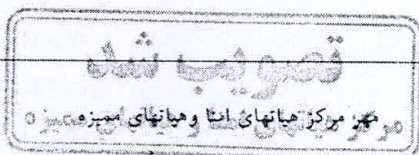 تصویب شد
مهر مرکز هیاتهای امنا و هیاتهای ممیزه